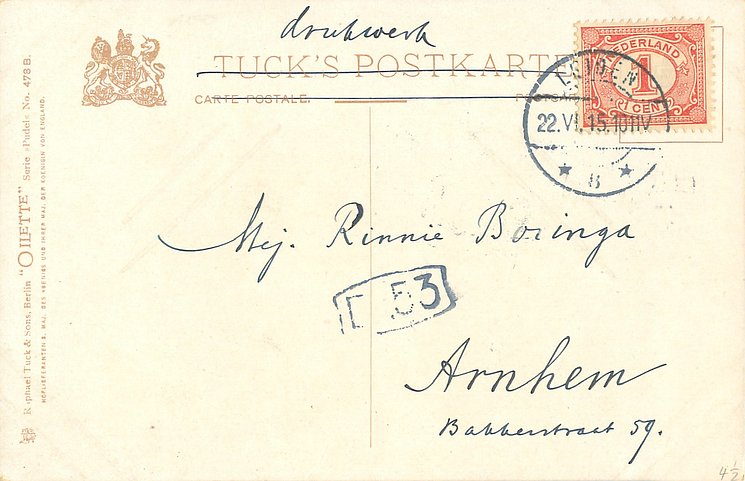 drukwerk
TUCK'S POSTKARTE
CARTE POSTALE.
NEDERLAND
1
CENT
LEIDEN
22.VI.15.10-11V
8
Mej. Rinnie Boringa
53
Arnhem
Bakkerstraat 59.
Raphael Tuck & Sons, Berlin "OILETTE" Serie »Pudel« No. 478 B.
HOFLIEFERANTEN S. MAJ. DES KOENIGS UND IHRER MAJ. DER KOENIGIN VON ENGLAND.
4½